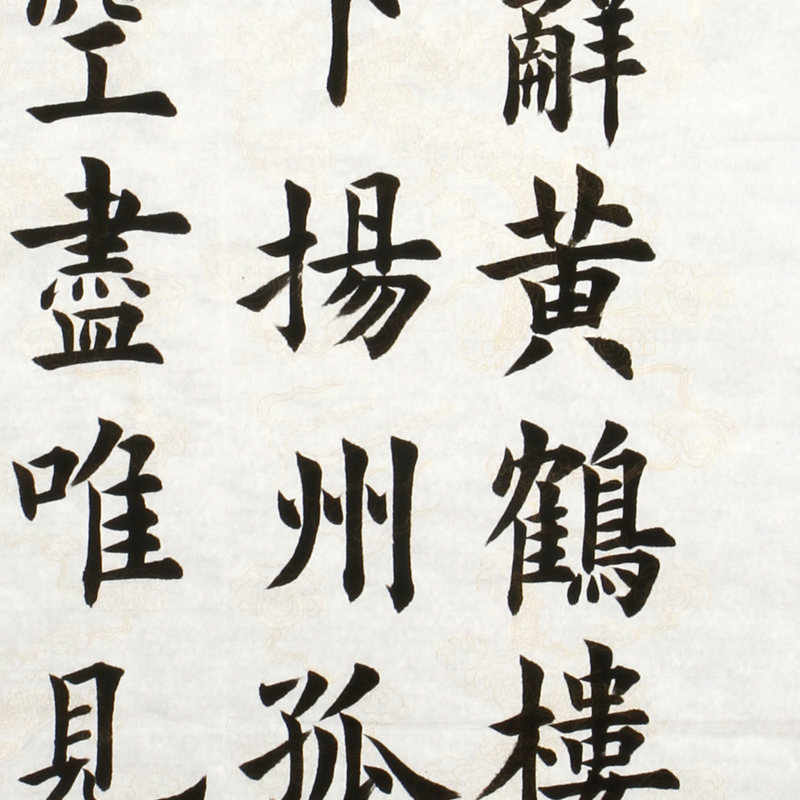 辭黄鶴樓
下揚州孤
空盡唯見